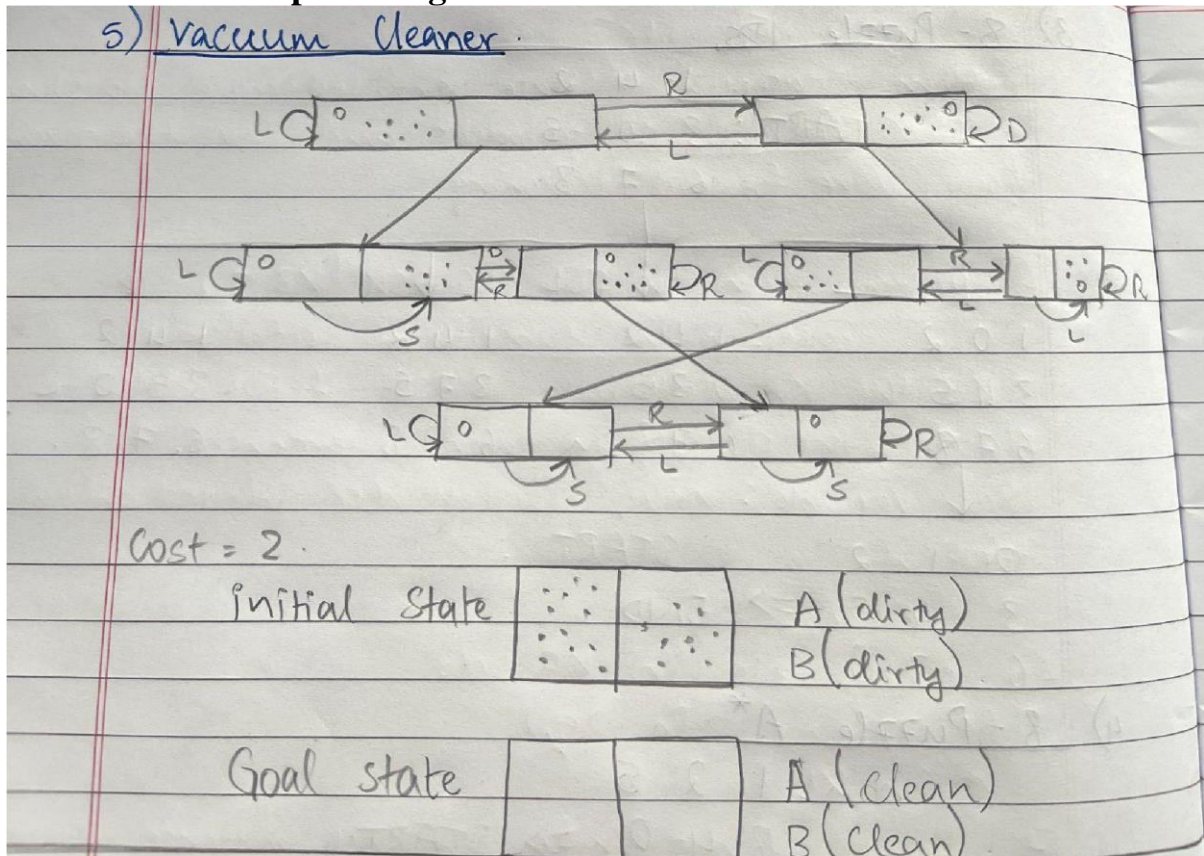 5) Vacuum Cleaner.
R
L D
L
L D R L R R
R L
S L
R
L R
L
S S
Cost = 2.
initial State A (dirty)
B (dirty)
Goal state A (clean)
B (clean)